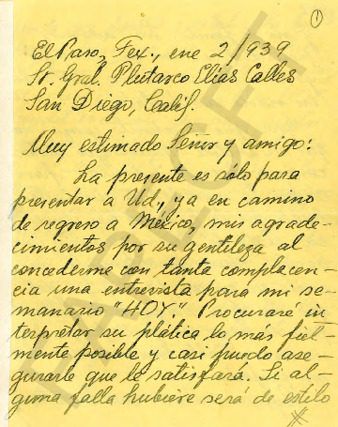 1
El Paso, Tex., ene 2/939
Sr. Gral. Plutarco Elías Calles
San Diego, Calif.
Muy estimado Señor y amigo:
La presente es sólo para
presentar a Ud., ya en camino
de regreso a México, mis agrade-
cimientos por su gentileza al
concederme con tanta complacen-
cia una entrevista para mi se-
manario "HOY." Procuraré in
terpretar su plática lo más fiel-
mente posible y casi puedo ase-
gurarle que le satisfará. Si al-
guna falla hubiere será de estilo